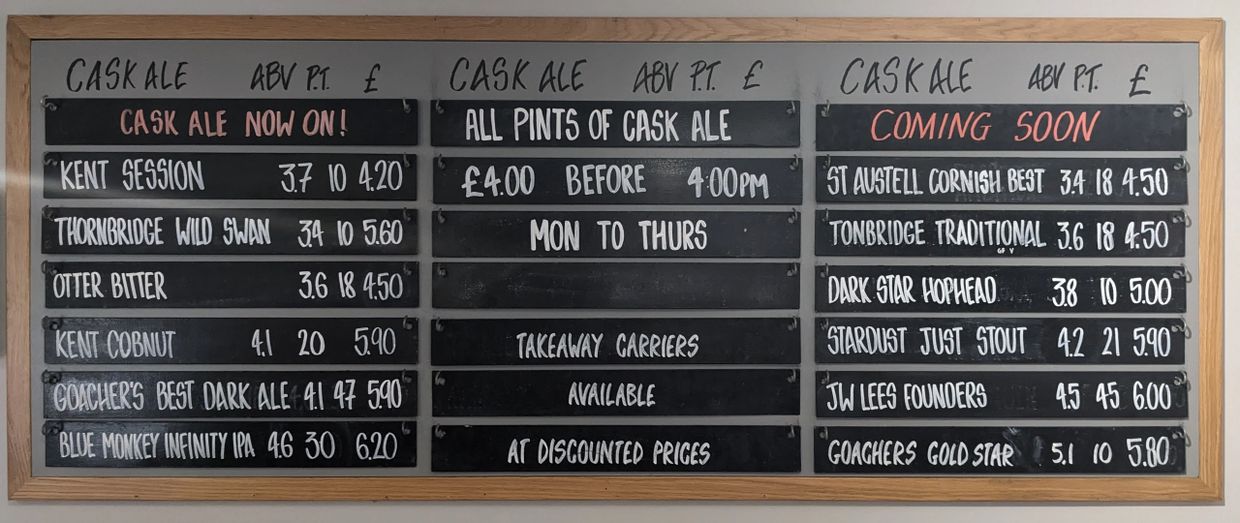 CASK ALE ABV P.T. £
CASK ALE NOW ON!
KENT SESSION 3.7 10 4.20
THORNBRIDGE WILD SWAN 3.4 10 5.60
OTTER BITTER 3.6 18 4.50
KENT COBNUT 4.1 20 5.90
GOACHER'S BEST DARK ALE 4.1 47 5.90
BLUE MONKEY INFINITY IPA 4.6 30 6.20
CASK ALE ABV P.T. £
ALL PINTS OF CASK ALE
£4.00 BEFORE 4:00PM
MON TO THURS
TAKEAWAY CARRIERS
AVAILABLE
AT DISCOUNTED PRICES
CASK ALE ABV P.T. £
COMING SOON
ST AUSTELL CORNISH BEST 3.4 18 4.50
TONBRIDGE TRADITIONAL 3.6 18 4.50
GF V
DARK STAR HOPHEAD 3.8 10 5.00
STARDUST JUST STOUT 4.2 21 5.90
JW LEES FOUNDERS 4.5 45 6.00
GOACHERS GOLD STAR 5.1 10 5.80